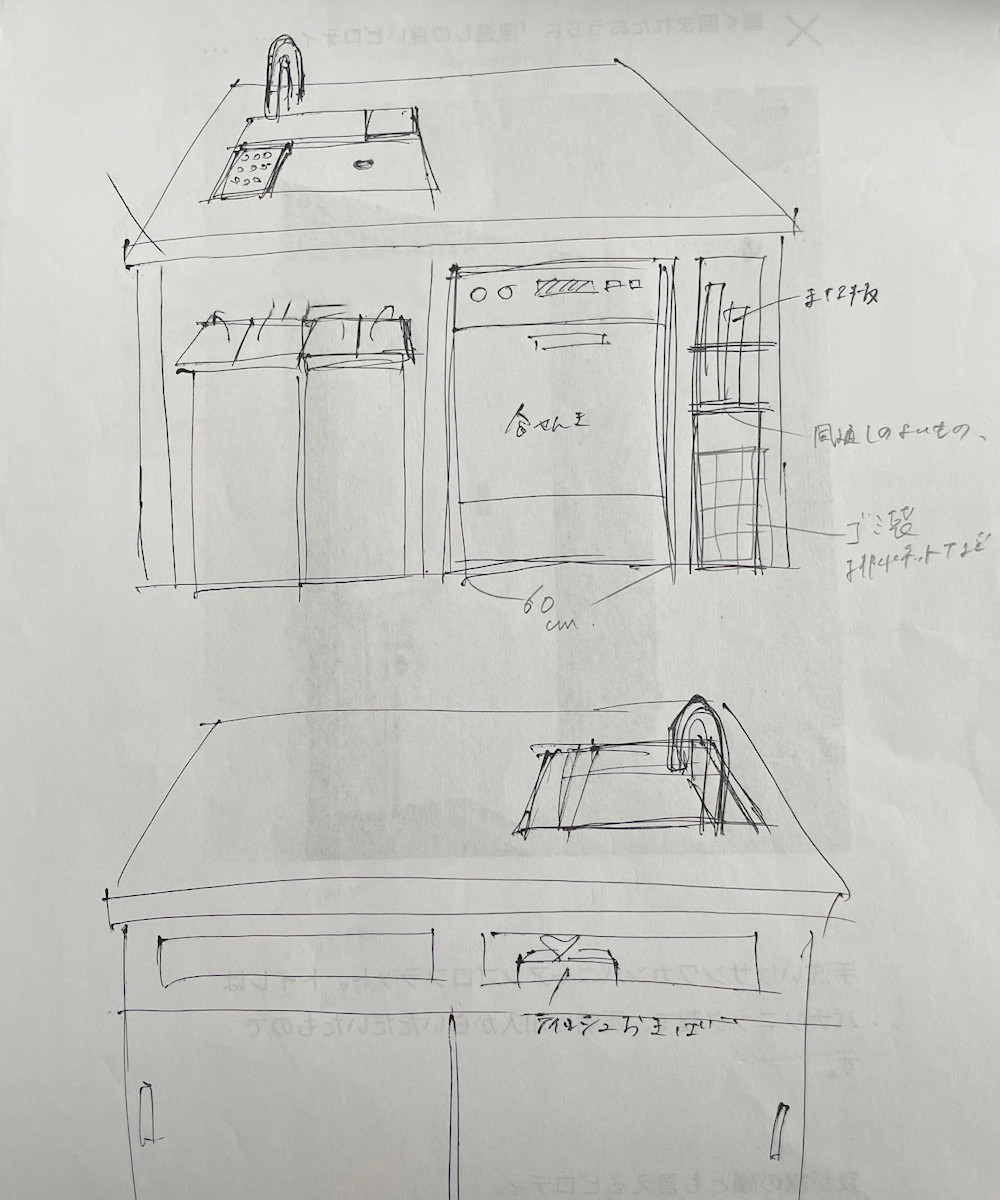 まな板
食せんき
風通しのよいもの、
ゴミ袋
排水ネットなど
60
cm.
ティッシュおきばー